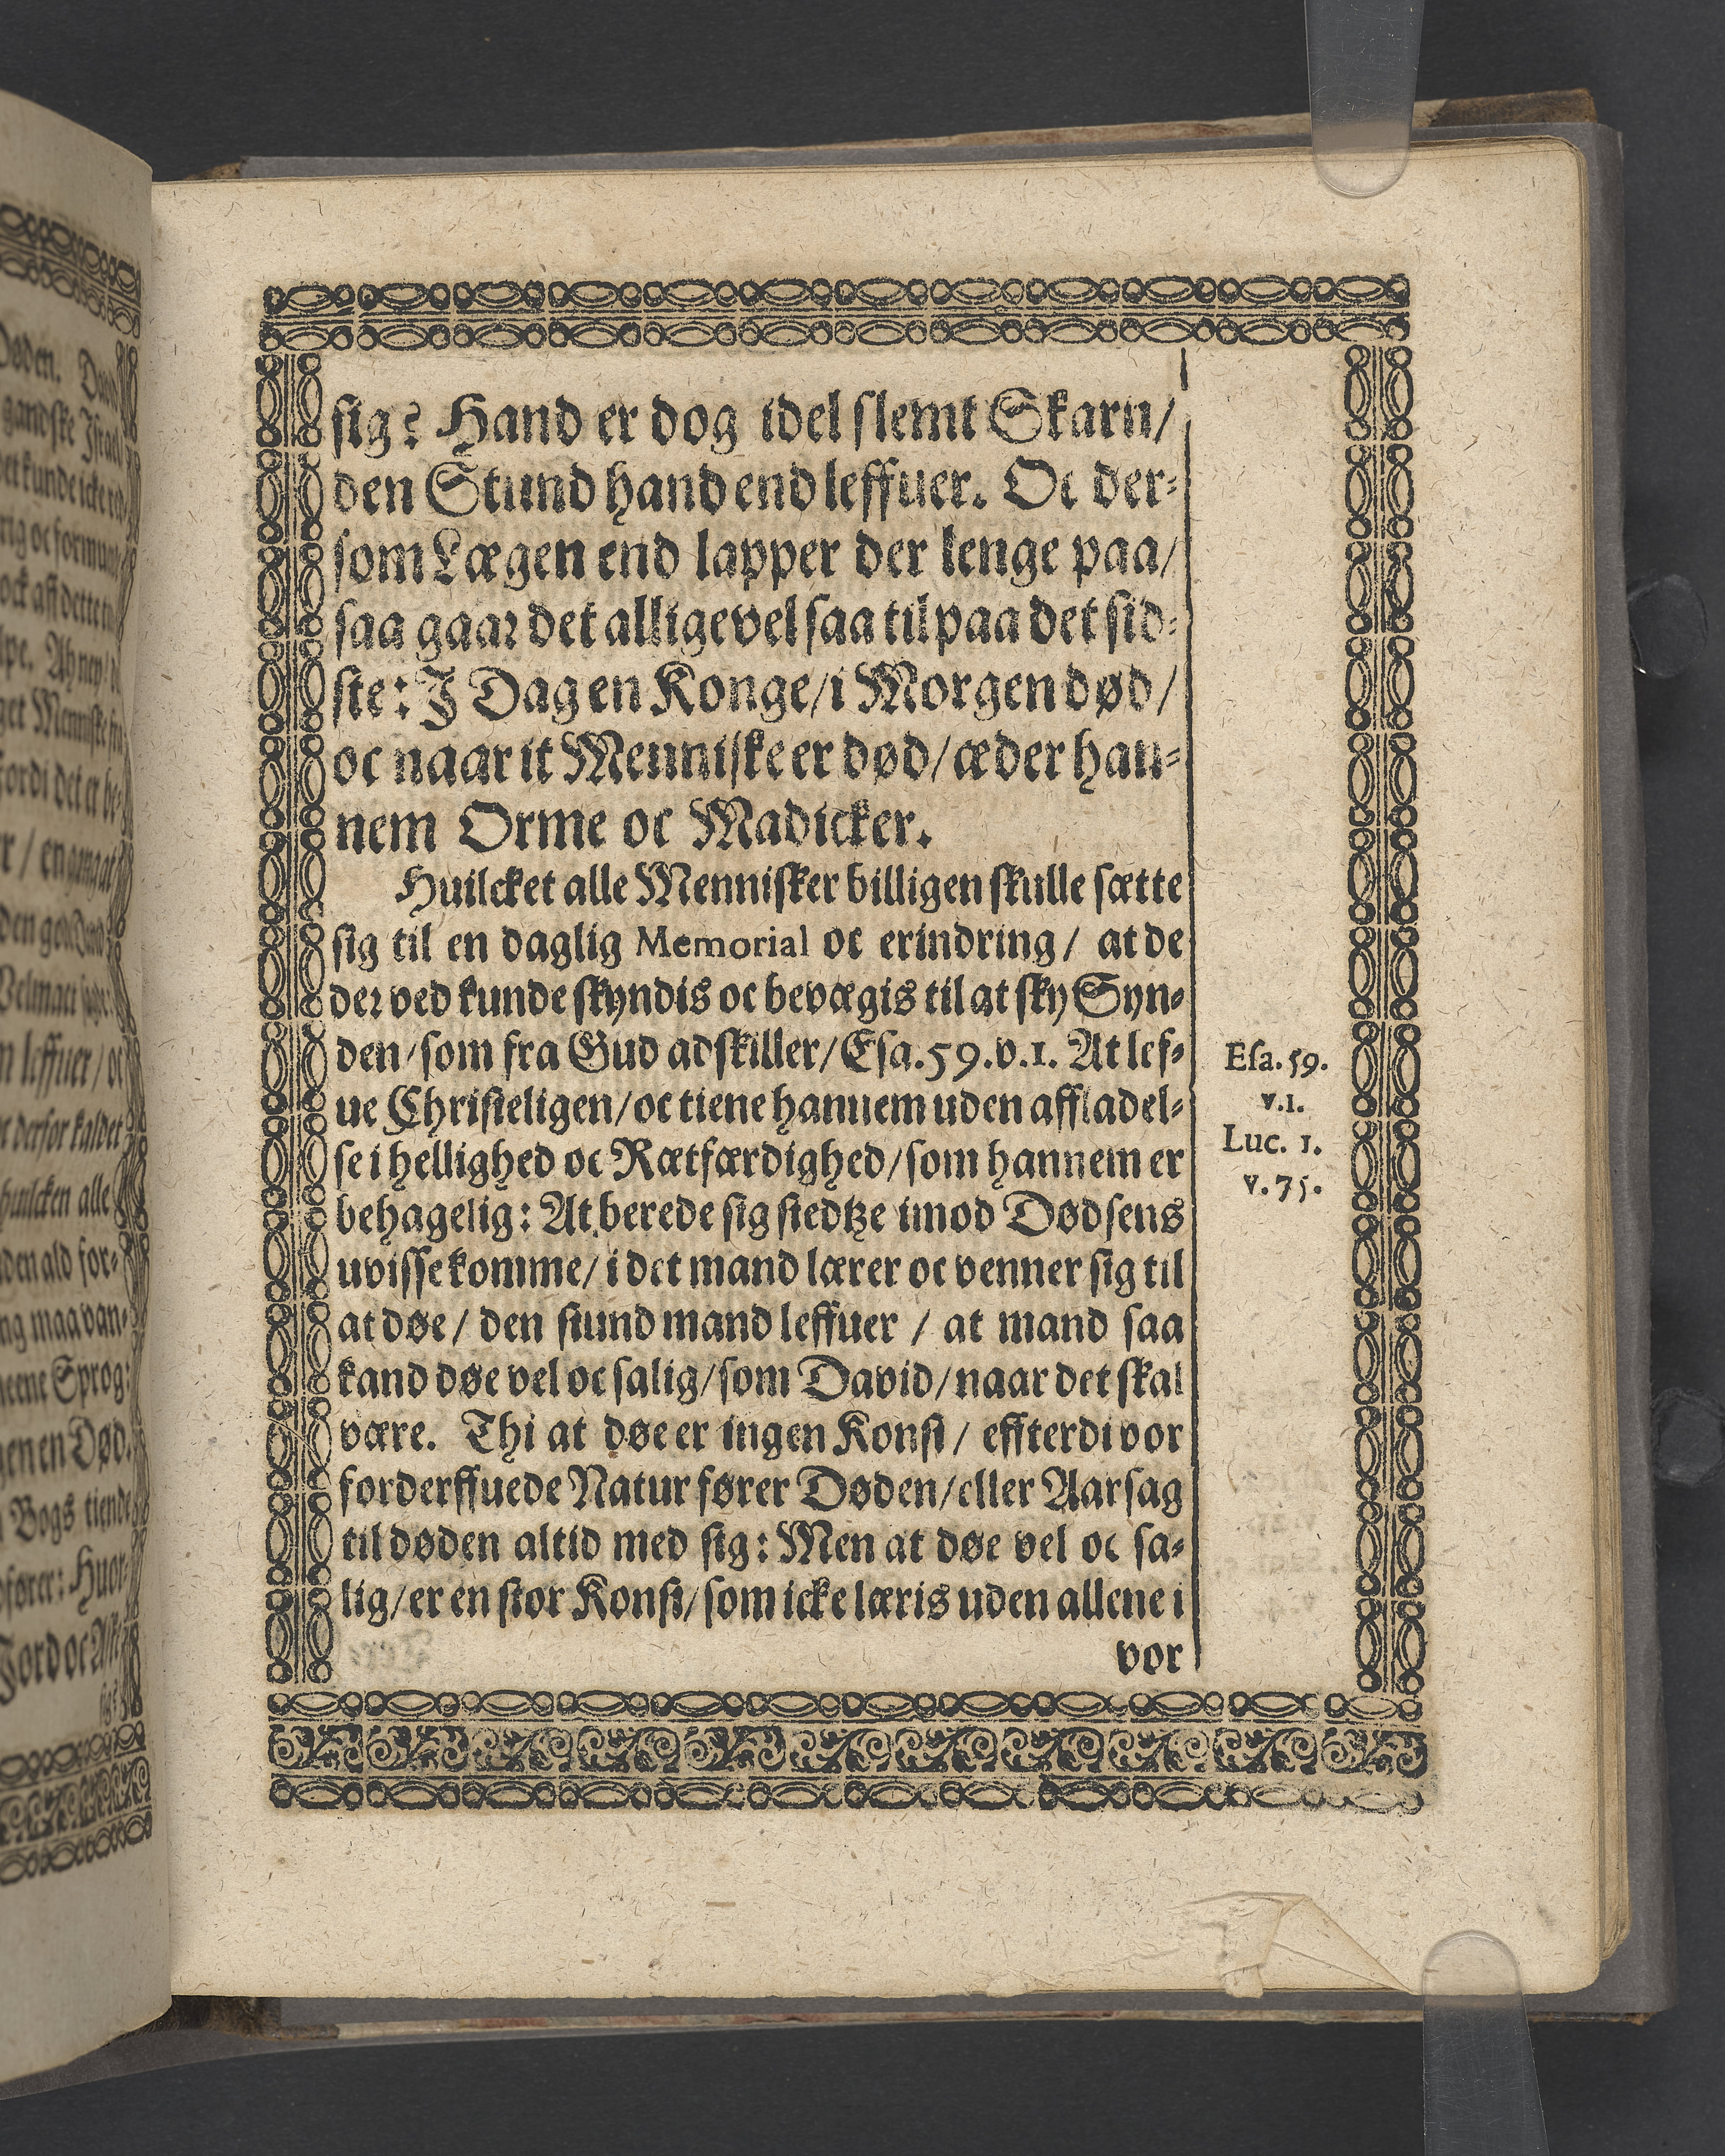 sig? Hand er dog idel slemt Skarn/
den Stund hand end leffuer. Oc der-
som Lægen end lapper der lenge paa/
saa gaar det alligevel saa til paa det sid-
ste: I Dag en Konge/ i Morgen død/
oc naar it Menniske er død/ æder han-
nem Orme oc Madicker.
Huilcket alle Mennisker billigen skulle sætte
sig til en daglig Memorial oc erindring/ at de
der ved kunde skyndis oc bevægis til at sky Syn-
den/ som fra Gud adskiller/ Esa.59.v.1. At lef-
ue Christeligen/ oc tiene hannem uden affladel-
se i hellighed oc Rætfærdighed/ som hannem er
behagelig: At berede sig stedtze imod Dødsens
uvisse komme/ i det mand lærer oc venner sig til
at døe/ den stund mand leffuer / at mand saa
kand døe vel oc salig/ som David/ naar det skal
være. Thi at døe er ingen Konst/ effterdi vor
forderffuede Natur fører Døden/ eller Aarsag
til døden altid med sig: Men at døe vel oc sa-
lig/ er en stor Konst/ som icke læris uden allene i
vor
Esa. 59.
v.1.
Luc. 1.
v. 75.